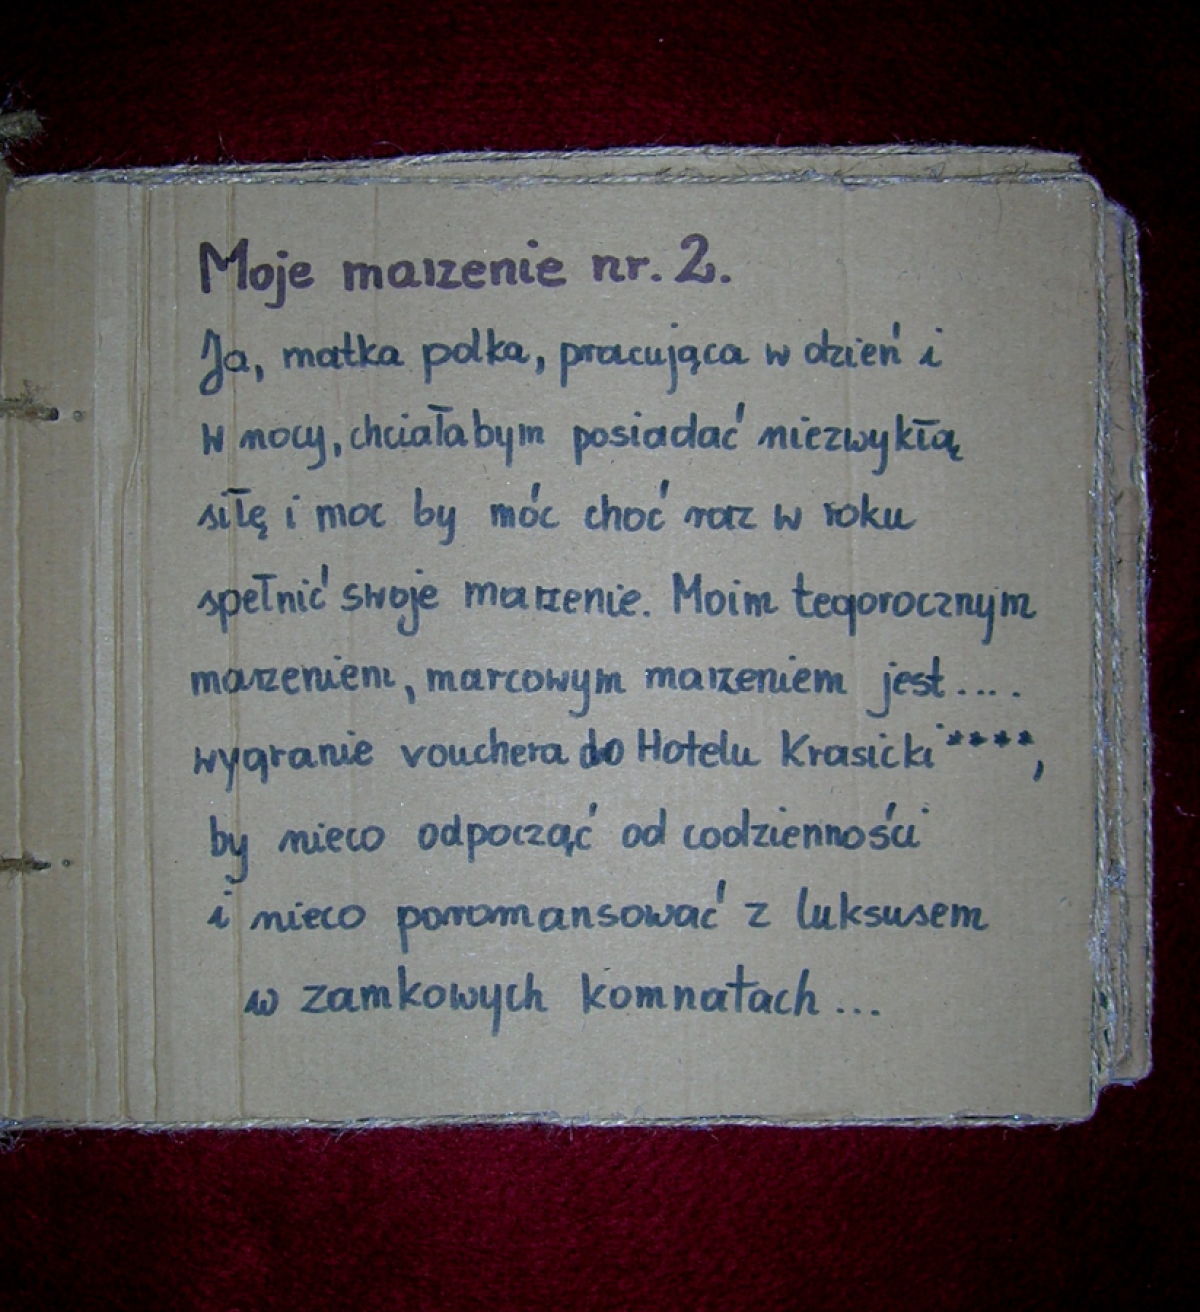 Moje marzenie nr. 2.
Ja, matka polka, pracująca w dzień i
w nocy, chciałabym posiadać niezwykłą
siłę i moc by móc choć raz w roku
spełnić swoje marzenie. Moim tegorocznym
marzeniem, marcowym marzeniem jest....
wygranie vouchera do Hotelu Krasicki****,
by nieco odpocząć od codzienności
i nieco poromansować z luksusem
w zamkowych komnatach...